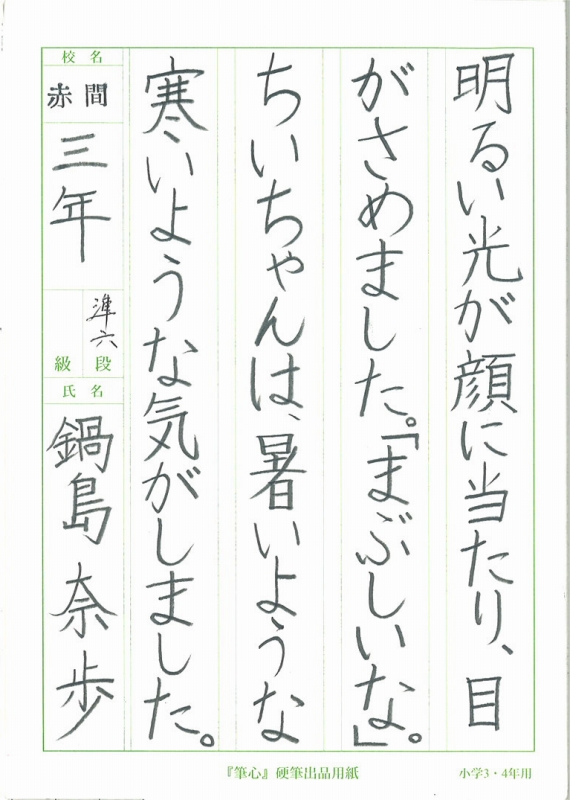 明るい光が顔に当たり、目
がさめました。「まぶしいな。」
ちいちゃんは、暑いような
寒いような気がしました。
校名
赤間
三年
準六
級 段
氏名
鍋島 奈歩
『筆心』硬筆出品用紙
小学3・4年用